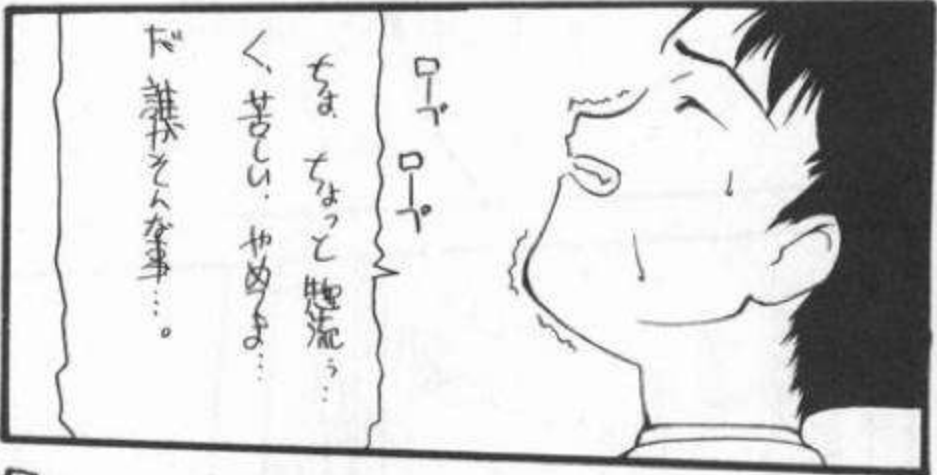 ロープ
ロープ
ちょ ちょっと 惣流ぅ‥
く、苦しい、やめよ‥
だ 誰がそんな事‥。